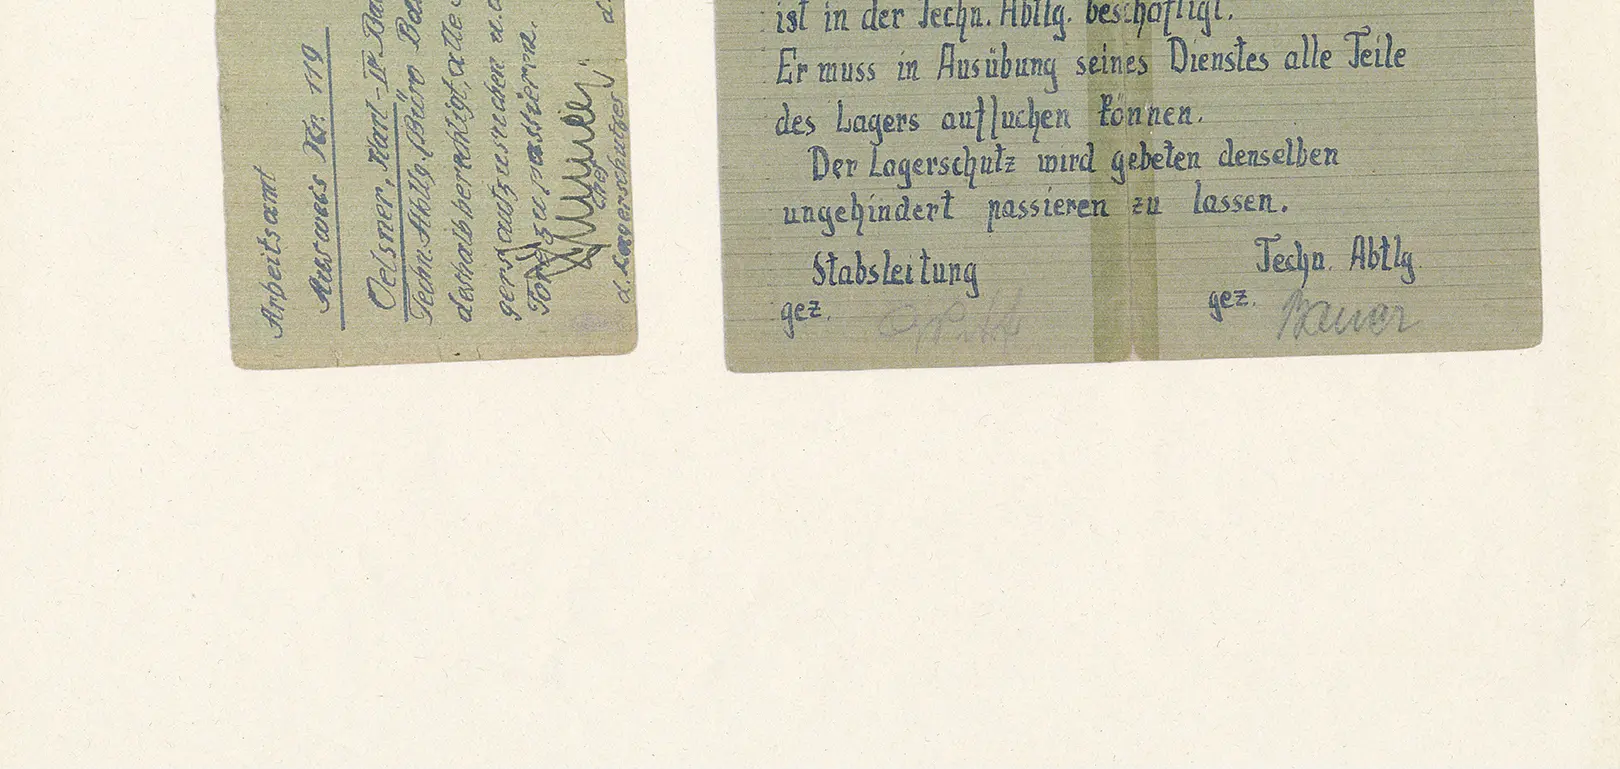 Arbeitsamt
Ausweis Nr. 119
Oelsner, Karl - II
Techn. Abtlg. (Büro
deshalb berechtigt, alle
aufzusuchen u.
Tore zu passieren.
Chef
d. Lagerschutzes
ist in der Techn. Abtlg. beschäftigt.
Er muss in Ausübung seines Dienstes alle Teile
des Lagers aufsuchen können.
Der Lagerschutz wird gebeten denselben
ungehindert passieren zu lassen.
Stabsleitung Techn. Abtlg.
gez. gez. Bauer